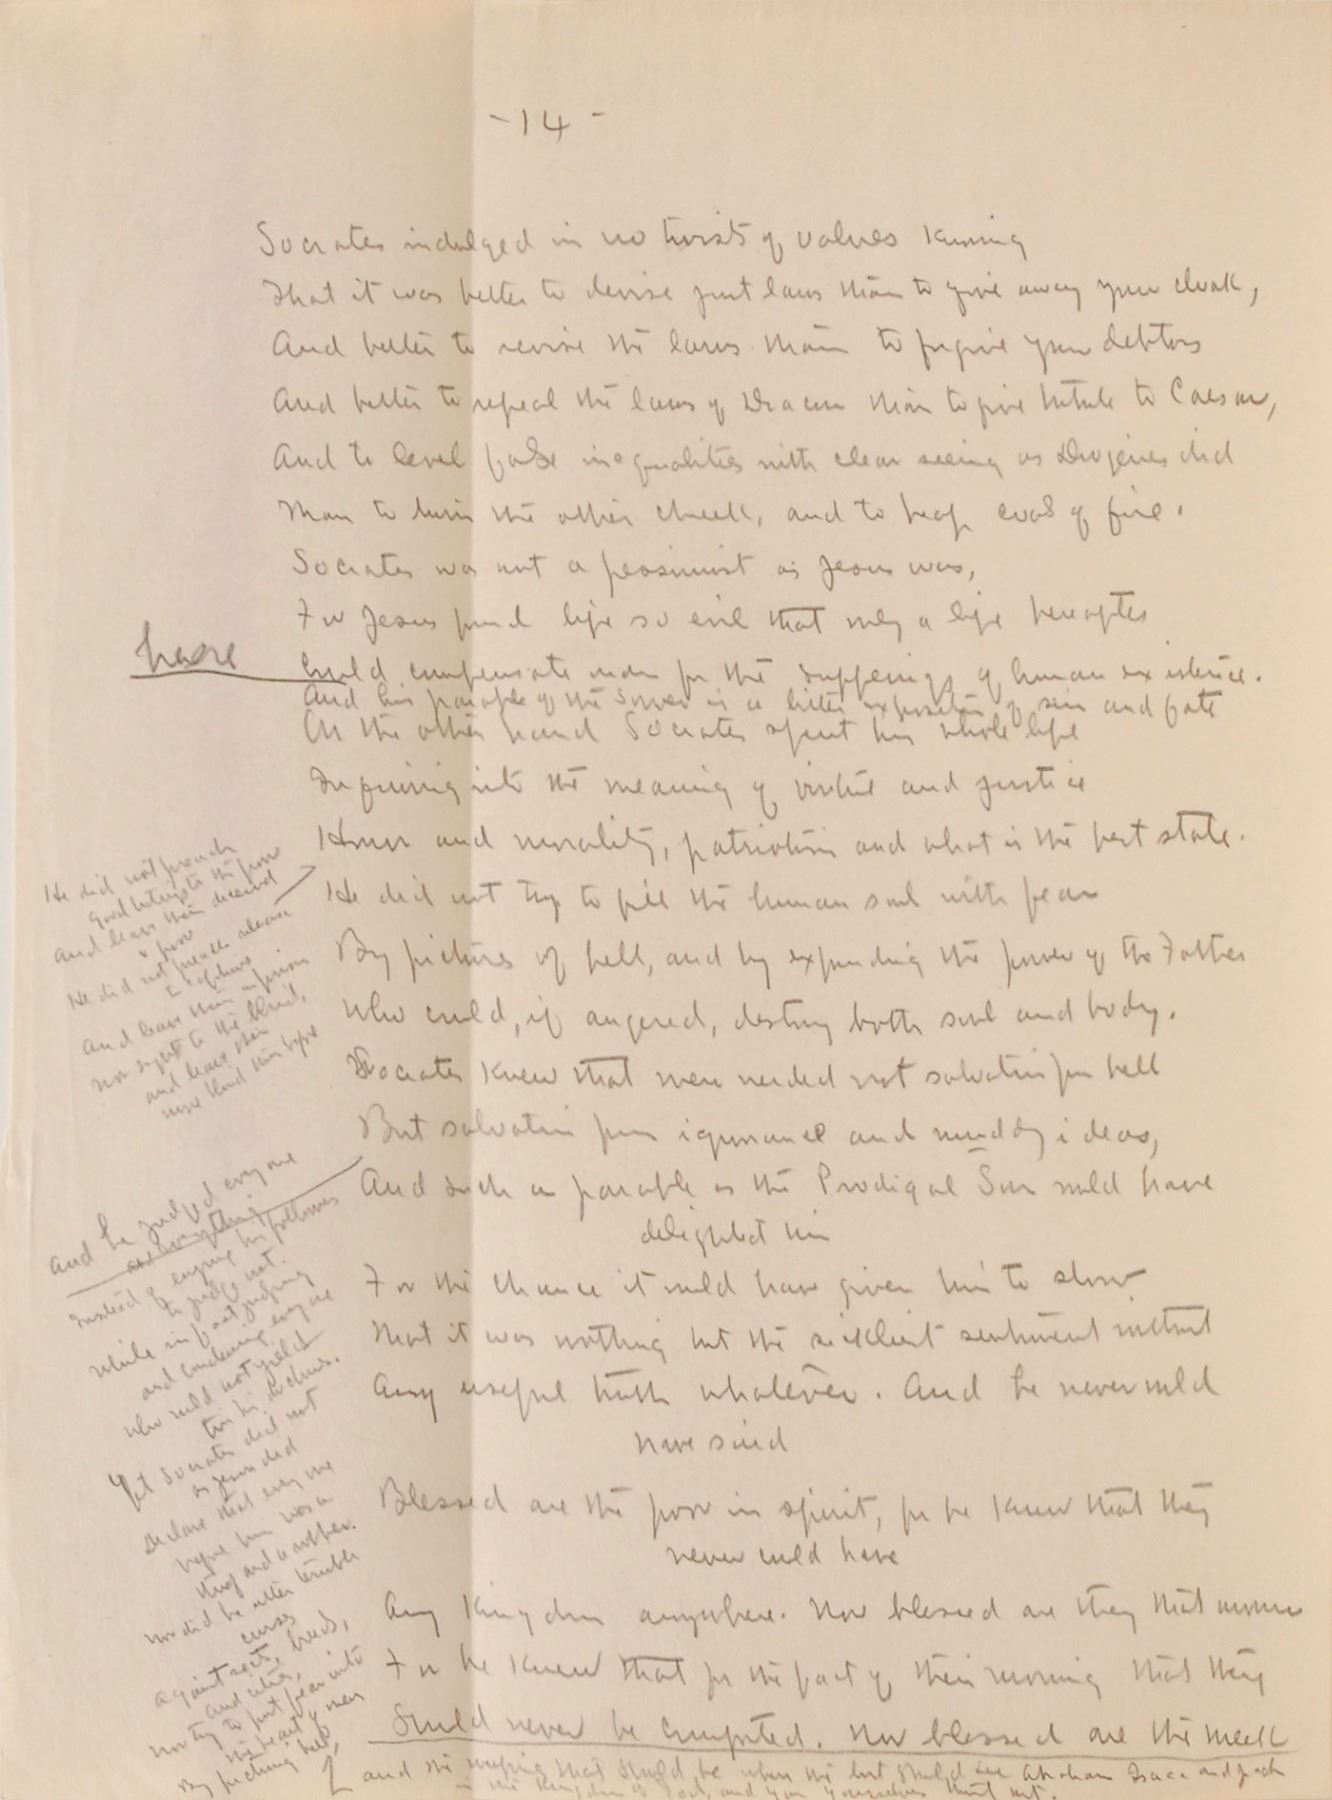 - 14 -
Socrates indulged in no twists of values knowing
That it was better to devise just laws than to give away your cloak,
And better to revise the laws than to forgive your debtors
And better to repeal the laws of Dracon than to give tribute to Caesar,
And to level false inequalities with clear seeing as Diogenes did
Than to turn the other cheek, and to heap coals of fire.
Socrates was not a pessimist as Jesus was,
For Jesus found life so evil that only a life hereafter
here
Could compensate man for the sufferings of human existence.
And his parable of the Sower is a bitter exposition of sin and fate
On the other hand Socrates spent his whole life
Inquiring into the meaning of virtue and justice
Honor and morality, patriotism and what is the best state.
He did not preach
good tidings to the poor
And leave them deceived
& poor
He did not preach release
to captives
And leave them in prison
Nor sight to the blind,
and leave them
more blind than before
He did not try to fill the human soul with fear
By pictures of hell, and by expounding the power of the Father
Who could, if angered, destroy both soul and body.
Socrates knew that men needed not salvation from hell
But salvation from ignorance and muddy ideas,
And he judged everyone
and everything
Instead of enjoining his followers
to judge not.
While in fact judging
and condemning everyone
who would not yield
to his doctrines.
Yet Socrates did not
as Jesus did
Declare that every one
before him was a
thief and a robber.
Nor did he utter terrible
curses
against sects, breeds,
and cities,
Nor try to put fear into
the hearts of men
By preaching hell,
And such a parable as the Prodigal Son would have
delighted him
For the chance it would have given him to show
That it was nothing but the sickliest sentiment without
Any useful truth whatever. And he never would
have said
Blessed are the poor in spirit, for he knew that they
never could have
Any Kingdom anywhere. Nor blessed are they that mourn
For he knew that for the fact of their mourning that they
Could never be comforted. Nor blessed are the meek
and the weeping that should be when the lost should see Abraham Isaac and Jacob
in the kingdom of God, and you yourselves thrust out.